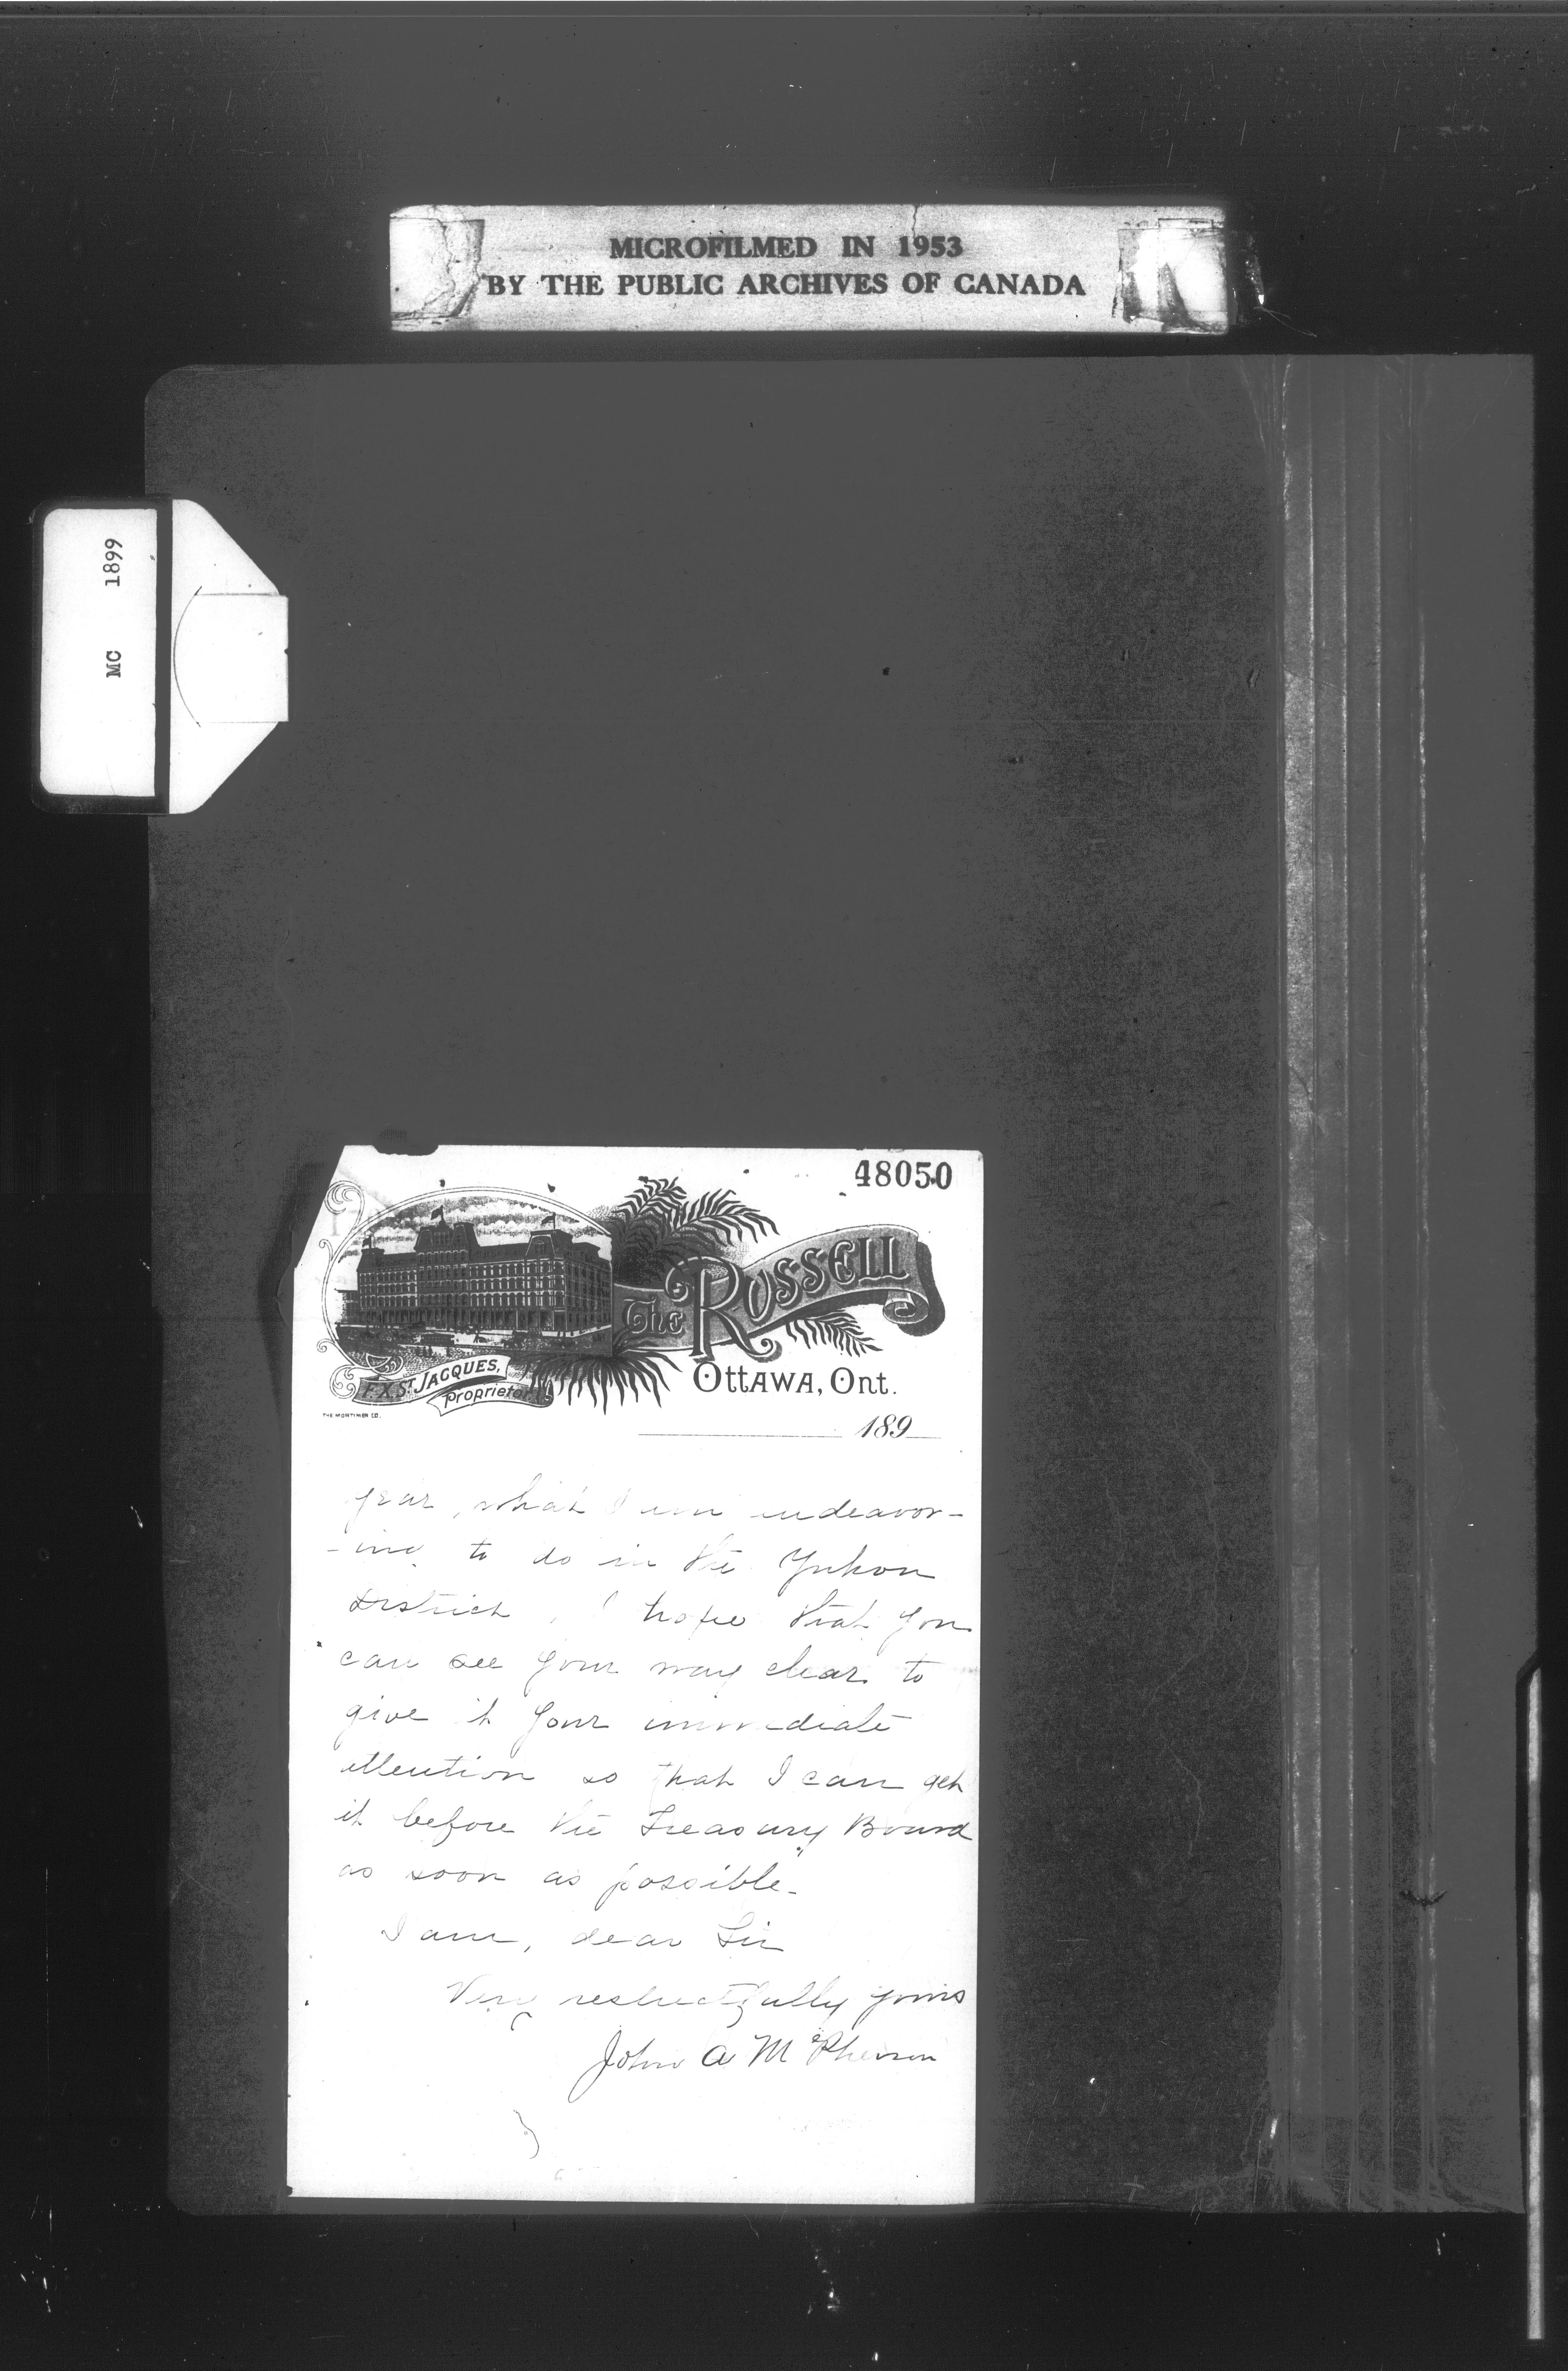 MICROFILMED IN 1953
BY THE PUBLIC ARCHIVES OF CANADA
MC 1899
48050
The RUSSELL
F.X. ST. JACQUES,
Proprietor
OTTAWA, ONT.
THE MORTIMER CO.
189
year, what I am endeavor-
-ing to do in the Yukon
District, I hope that you
can see your way clear to
give it your immediate
attention so that I can get
it before the Treasury Board
as soon as possible.
I am, dear Sir
Very respectfully yours
John A McPherson